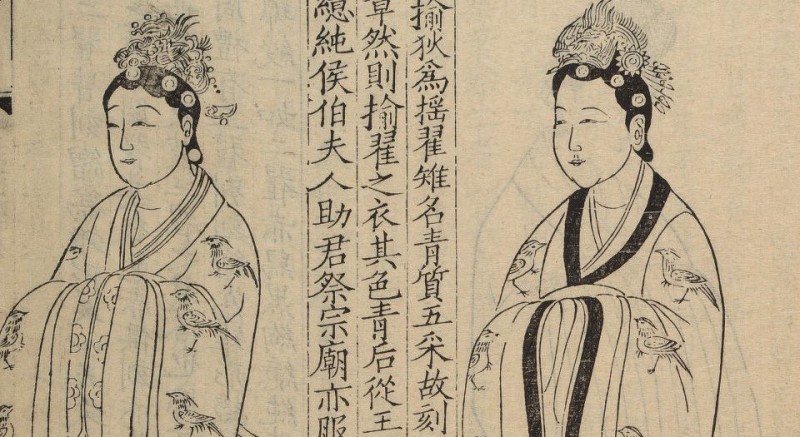 揄狄爲揺翟雉名青質五采故刻
章然則揄翟之衣其色青后從王
緫純侯伯夫人助君祭宗廟亦服